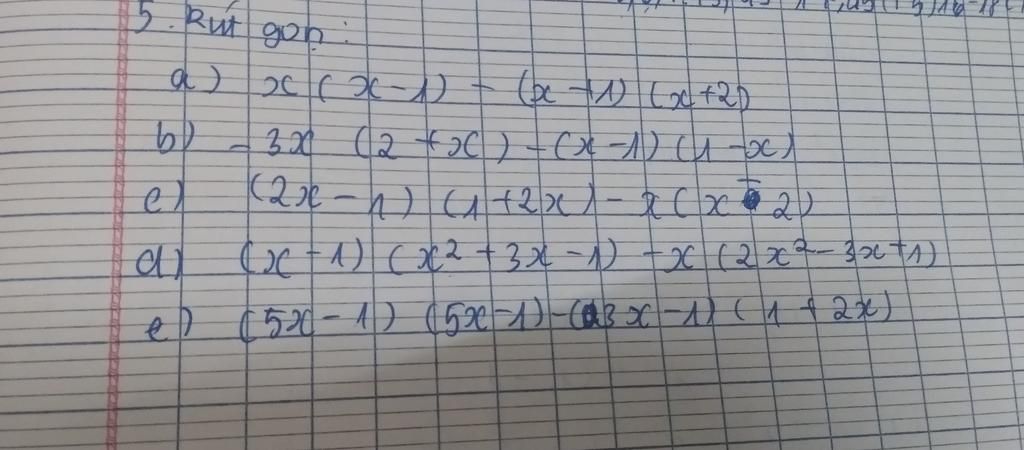 5. Rút gọn:
a) x (x - 1) - (x + 1) (x + 2)
b) - 3x (2 + x) - (x - 1) (1 - x)
c) (2x - 1) (1 + 2x) - x (x - 2)
d) (x + 1) (x² + 3x - 1) + x (2x² - 3x + 1)
e) (5x - 1) (5x - 1) - (3x - 1) (1 + 2x)